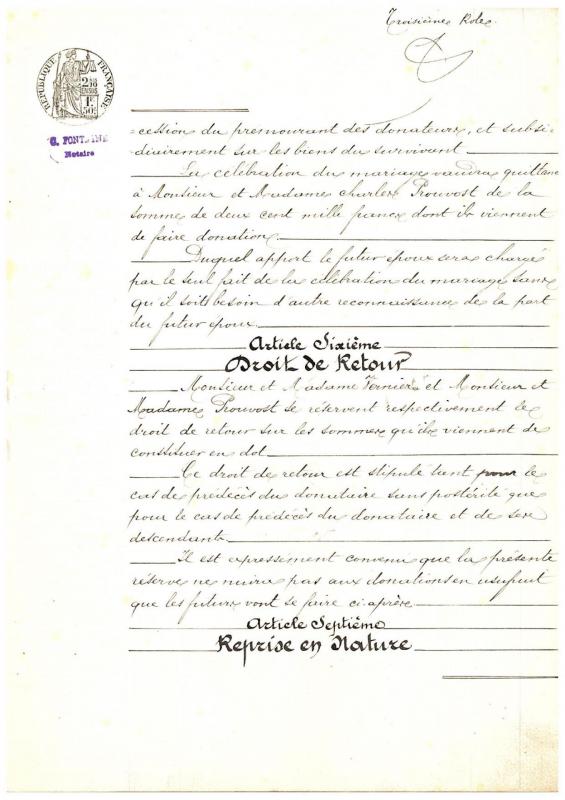 Troisième Role.
RÉPUBLIQUE FRANÇAISE
2 DIXes
EN SUS
1F.
50c.
G. FONTAINE
Notaire
=cession du prémourant des donateurs, et subsi
diairement sur les biens du survivant.
La célébration du mariage vaudra quittance
à Monsieur et Madame Charles Prouvost de la
somme de deux cent mille francs dont ils viennent
de faire donation
Duquel apport le futur époux sera chargé
par le seul fait de la célébration du mariage sans
qu'il soit besoin d'autre reconnaissance de la part
du futur époux.
Article Sixième
Droit de Retour
Monsieur et Madame Vernier et Monsieur et
Madame Prouvost se réservent respectivement le
droit de retour sur les sommes qu'ils viennent de
constituer en dot.
Ce droit de retour est stipulé tant pour le
cas de prédécès du donataire sans postérité que
pour le cas de prédécès du donataire et de ses
descendants.
Il est expressément convenu que la présente
réserve ne nuira pas aux donations en usufruit
que les futurs vont se faire ci-après.
Article Septième
Reprise en Nature